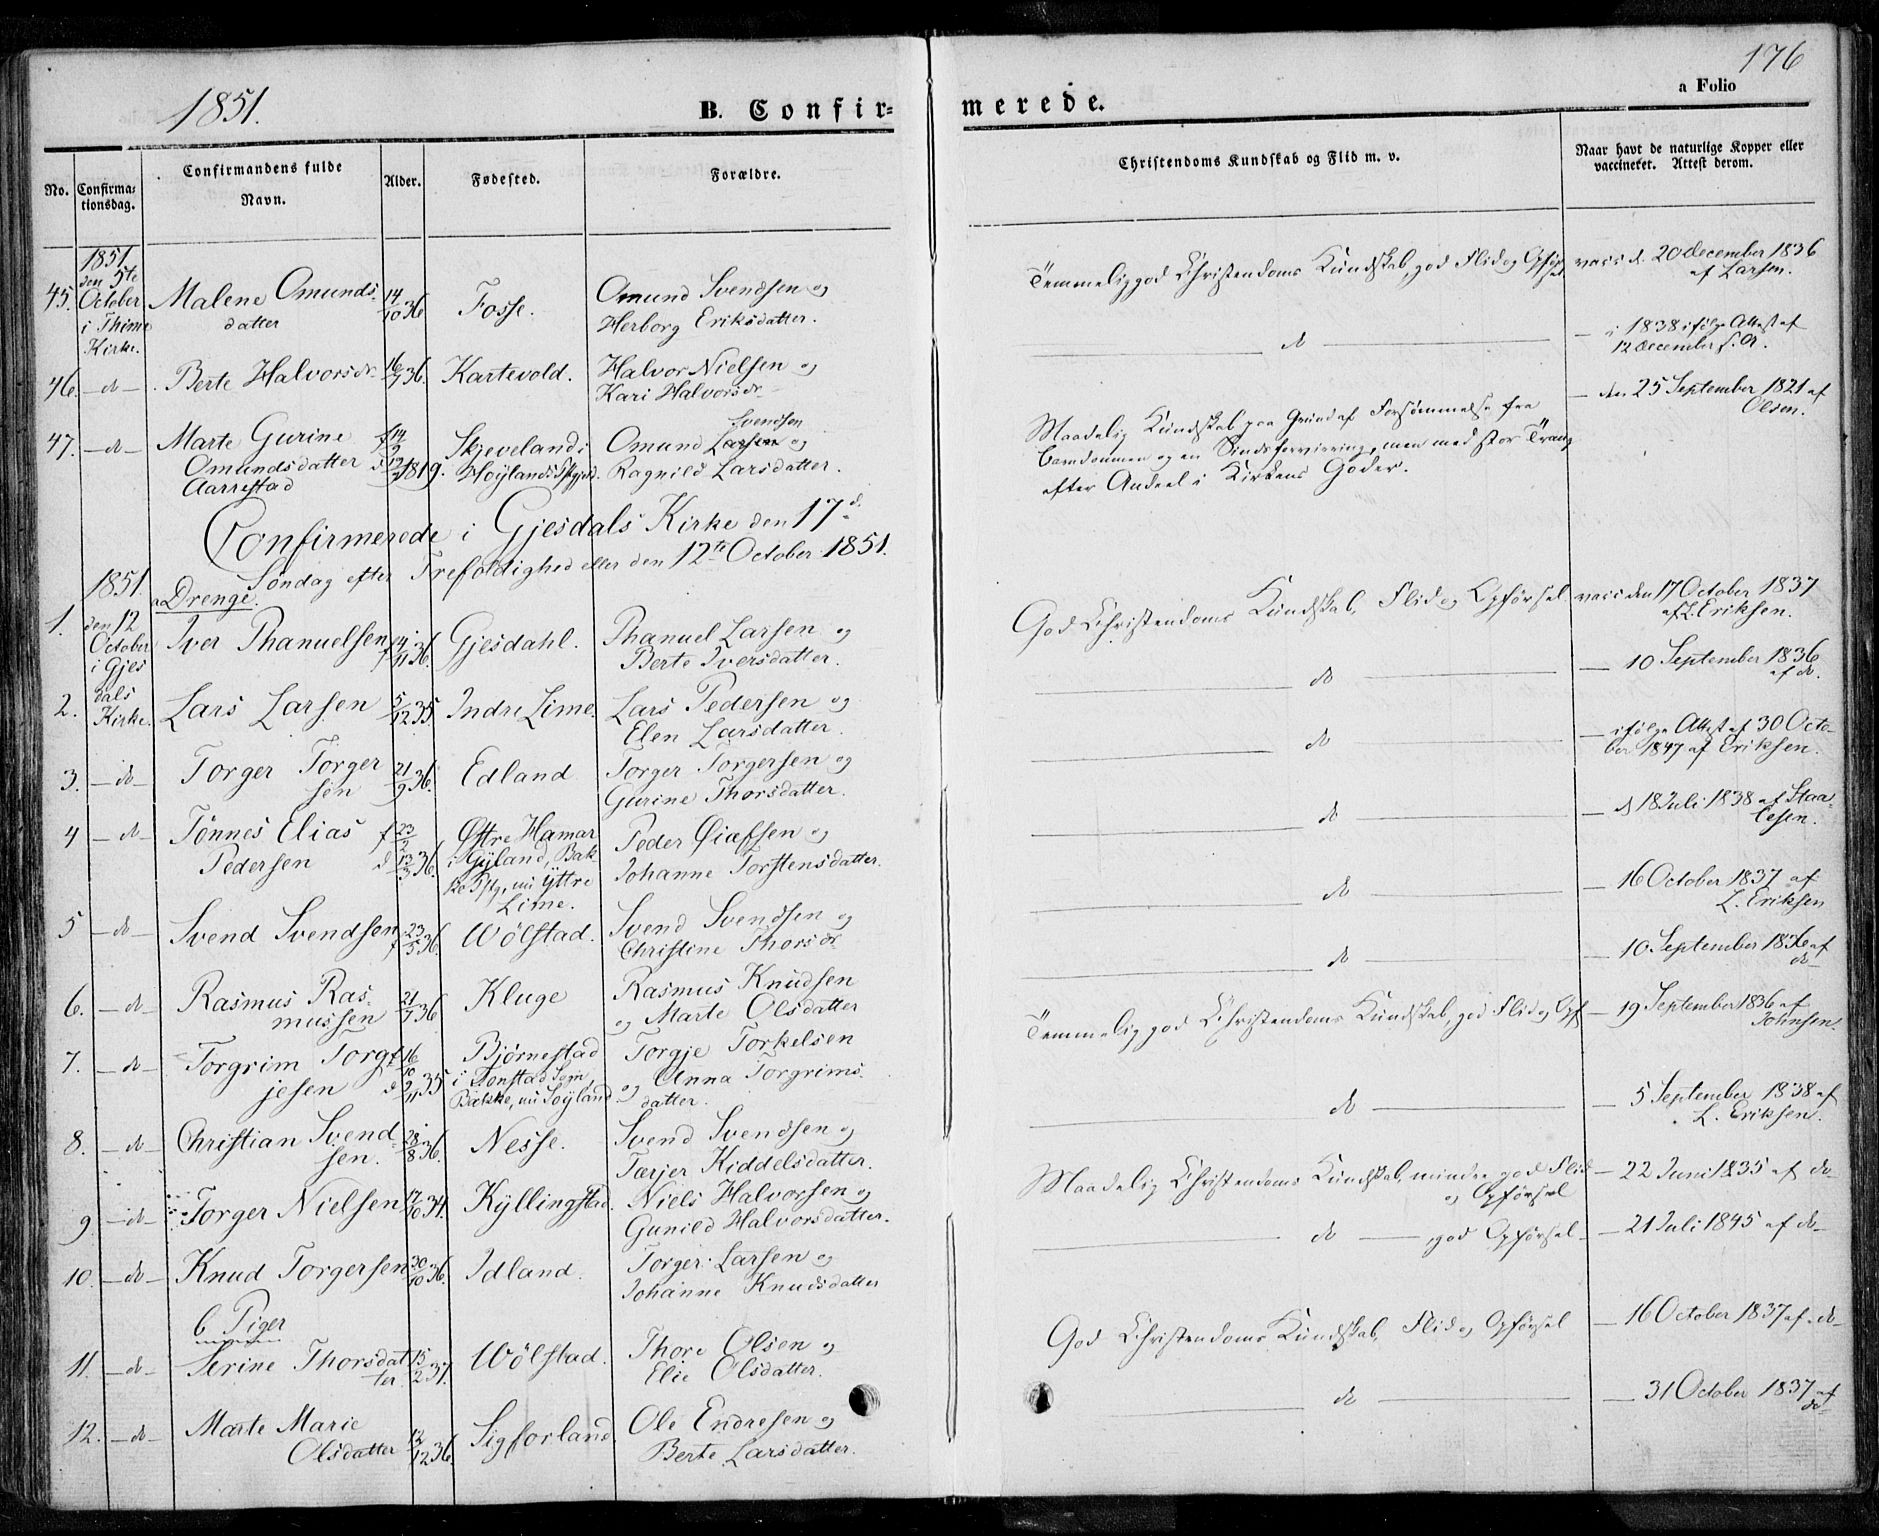 1851.
B. Confir=
merede.
176
a Folio
No.
Confirma=
tionsdag.
Confirmandens fulde
Navn.
Alder.
Fødested.
Forældre.
Christendoms Kundskab og Flid m. v.
Naar havt de naturlige Kopper eller
vaccineket. Attest derom.
45. 1851. den 5te October i Thime Kirke. Malene Omunds-datter 14/10 36 Fosse. Omund Svendsen og Herborg Eriksdatter. Temmelig god Christendoms Kundskab, god Flid og Opførsel vacc. d. 20 december 1836 af Larsen.
46. -do- Berte Halvorsdr 16/7 36. Kartevold. Halvor Nielsen og Kari Halvorsdr do – i 1838 ifølge Attest af 12 december s. A.
47. -do- Marte Gurine Omundsdatter Aarrestad 1819. Skjeveland i Høylands Omund Larsen Svendsen og Ragnild Larsdatter. Maadelig Kundskab paa Grund af Forsømmelse fra
Barndommen og en Sindsforvirring, men med stor Trang
efter Andeel i Kirkens Goder. – den 25 September 1821 af Olsen.
Confirmerede i Gjesdals Kirke den 17d.
Søndag efter Trefoldighed eller den 12te October 1851.
1851. a Drenge.
1. den 12 October i Gjesdals Kirke. Iver Phanuelsen f 14/11 36. Gjesdahl. Phanuel Larsen og Berte Iversdatter. God Christendoms Kundskab, Flid og Opførsel vacc den 17 October 1837 af L. Eriksen.
2. Lars Larsen 5/12 35. Indre Lime. Lars Pedersen og Elen Larsdatter. do – 10 September 1836 af do.
3. -do- Torger Torgersen 21/9 36. Edland Torger Torgersen og Gurine Thorsdatter. do – ifølge Attest af 30 October 1847 af Eriksen.
4 -do- Tønnes Elias Pedersen f 23/2 d 13/3 36. Østre Hamar i Gyland, Bakke Pgj, nu Yttre Lime. Peder og Johanne Torstensdatter. do – d 18 Juli 1838 af Staalesen.
5 -do- Svend Svendsen f 23/5 36. Wølstad. Svend Svendsen og Christine Thorsdr do – 16 October 1837 af L. Eriksen
6. -do- Rasmus Rasmussen 21/7 36. Kluge Rasmus Knudsen og Marte Olsdatter do – 10 September 1836 af do-
7. -do- Torgrim Torgjesen f 16/10 d 9/11 35 Bjørnestad i Tonstad Sogn, Bakke, nu Søyland. Torgje Torkelsen og Anna Torgrimsdatter. Temmelig god Christendoms Kundskab, god Flid og Opf – 19 September 1836 af Johnsen.
8. -do- Christian Svendsen. 28/8 36. Nesse. Svend Svendsen og Tærjer Kiddelsdatter. do – 5 September 1838 af L. Eriksen.
9. -do- Torger Nielsen 17/10 34. Kyllingstad. Niels Halvorsen og Gunild Halvorsdatter. Maadelig Christendoms Kundskab, mindre god Flid og Opførsel – 22 Juni 1835 af do-
10. -do- Knud Torgersen 30/10 36. Idland. Torger Larsen og Johanne Knudsdatter do – god Opførsel – 21 Juli 1845 af do-
b Piger
11. -do- Serine Thorsdatter. 15/2 37. Wølstad. Thore Olsen og Elie Olsdatter. God Christendoms Kundskab, Flid og Opførsel – 16 October 1837 af do-
12. -do- Marte Marie Olsdatter 12/12 36. Sigforland Ole Endresen og Berte Larsdatter. do – 31 October 1837 af do-